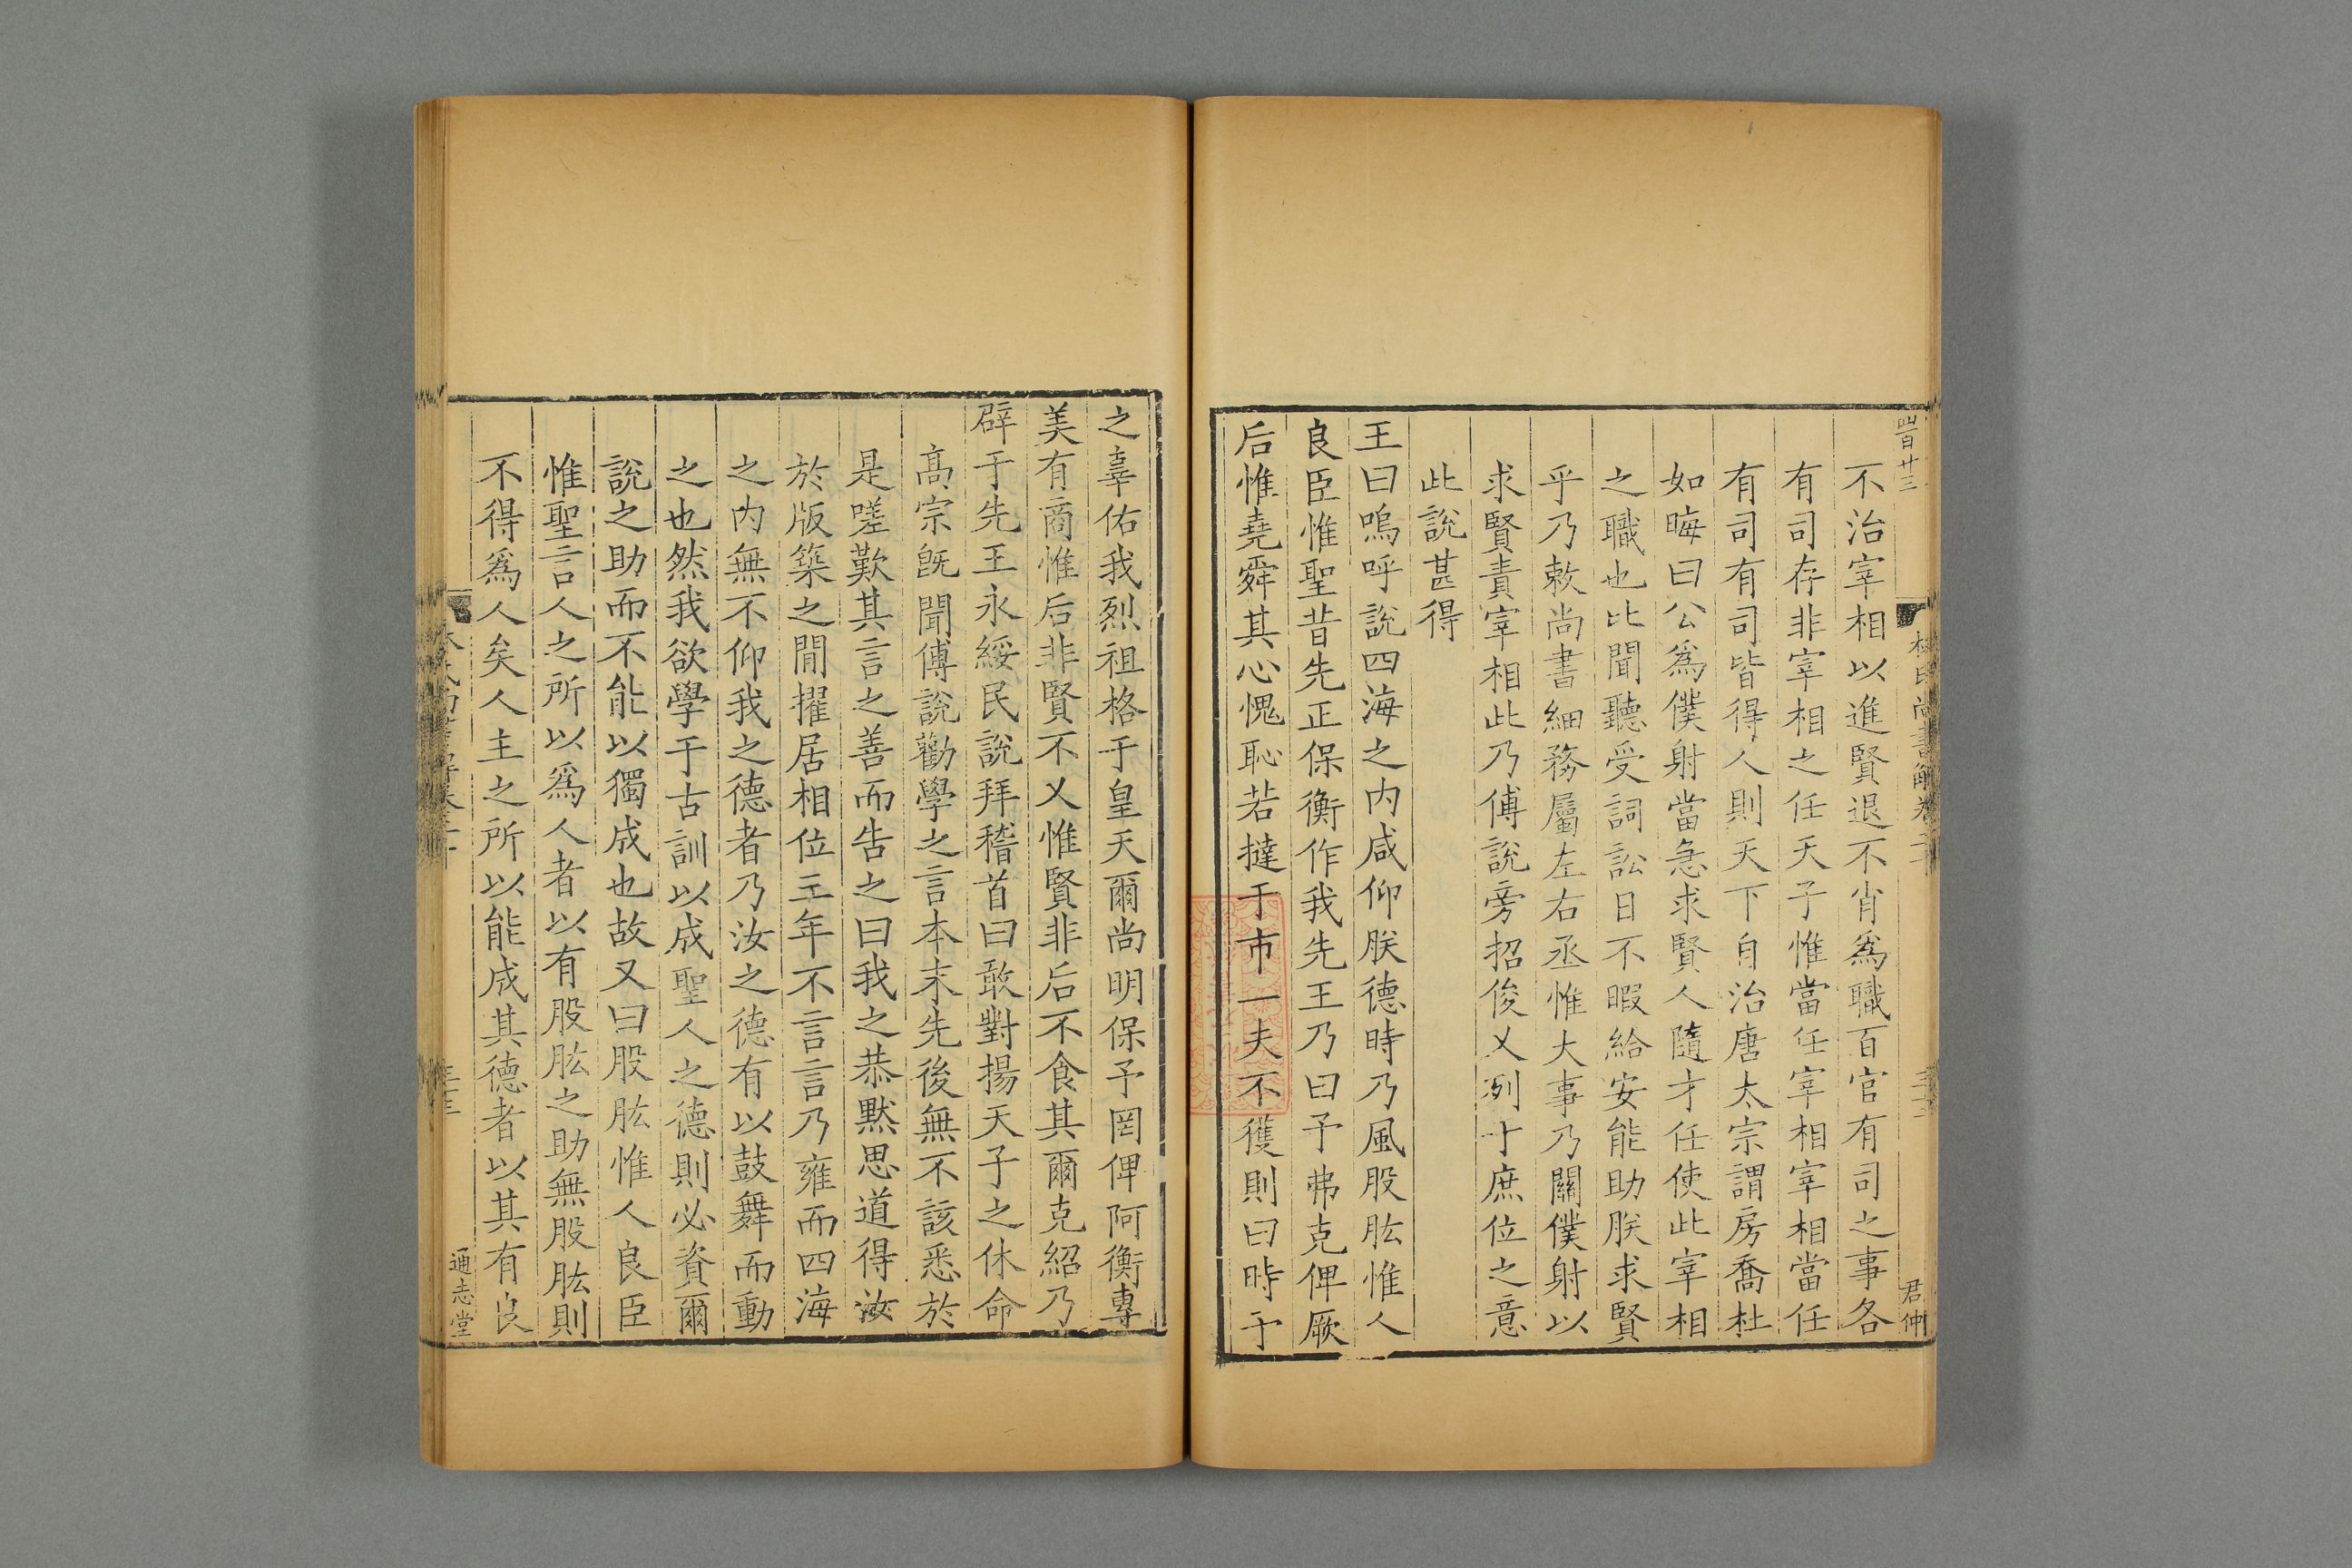 四百廿三
不治宰相以進賢退不肖爲職百官有司之事各
有司存非宰相之任天子惟當任宰相宰相當任
有司有司皆得人則天下自治唐太宗謂房喬杜
如晦曰公爲僕射當急求賢人隨才任使此宰相
之職也比聞聽受詞訟日不暇給安能助朕求賢
乎乃敕尚書細務屬左右丞惟大事乃關僕射以
求賢責宰相此乃傅說旁招俊乂列于庶位之意
此說甚得
王曰嗚呼說四海之內咸仰朕德時乃風股肱惟人
良臣惟聖昔先正保衡作我先王乃曰予弗克俾厥
后惟堯舜其心愧恥若撻于市一夫不獲則曰時予
君仲
之辜佑我烈祖格于皇天爾尚明保予罔俾阿衡專
美有商惟后非賢不乂惟賢非后不食其爾克紹乃
辟于先王永綏民說拜稽首曰敢對揚天子之休命
高宗旣聞傅說勸學之言本末先後無不該悉於
是嗟歎其言之善而告之曰我之恭默思道得汝
於版築之閒擢居相位三年不言言乃雍而四海
之內無不仰我之德者乃汝之德有以鼓舞而動
之也然我欲學于古訓以成聖人之德則必資爾
說之助而不能以獨成也故又曰股肱惟人良臣
惟聖言人之所以爲人者以有股肱之助無股肱則
不得爲人矣人主之所以能成其德者以其有良
通志堂